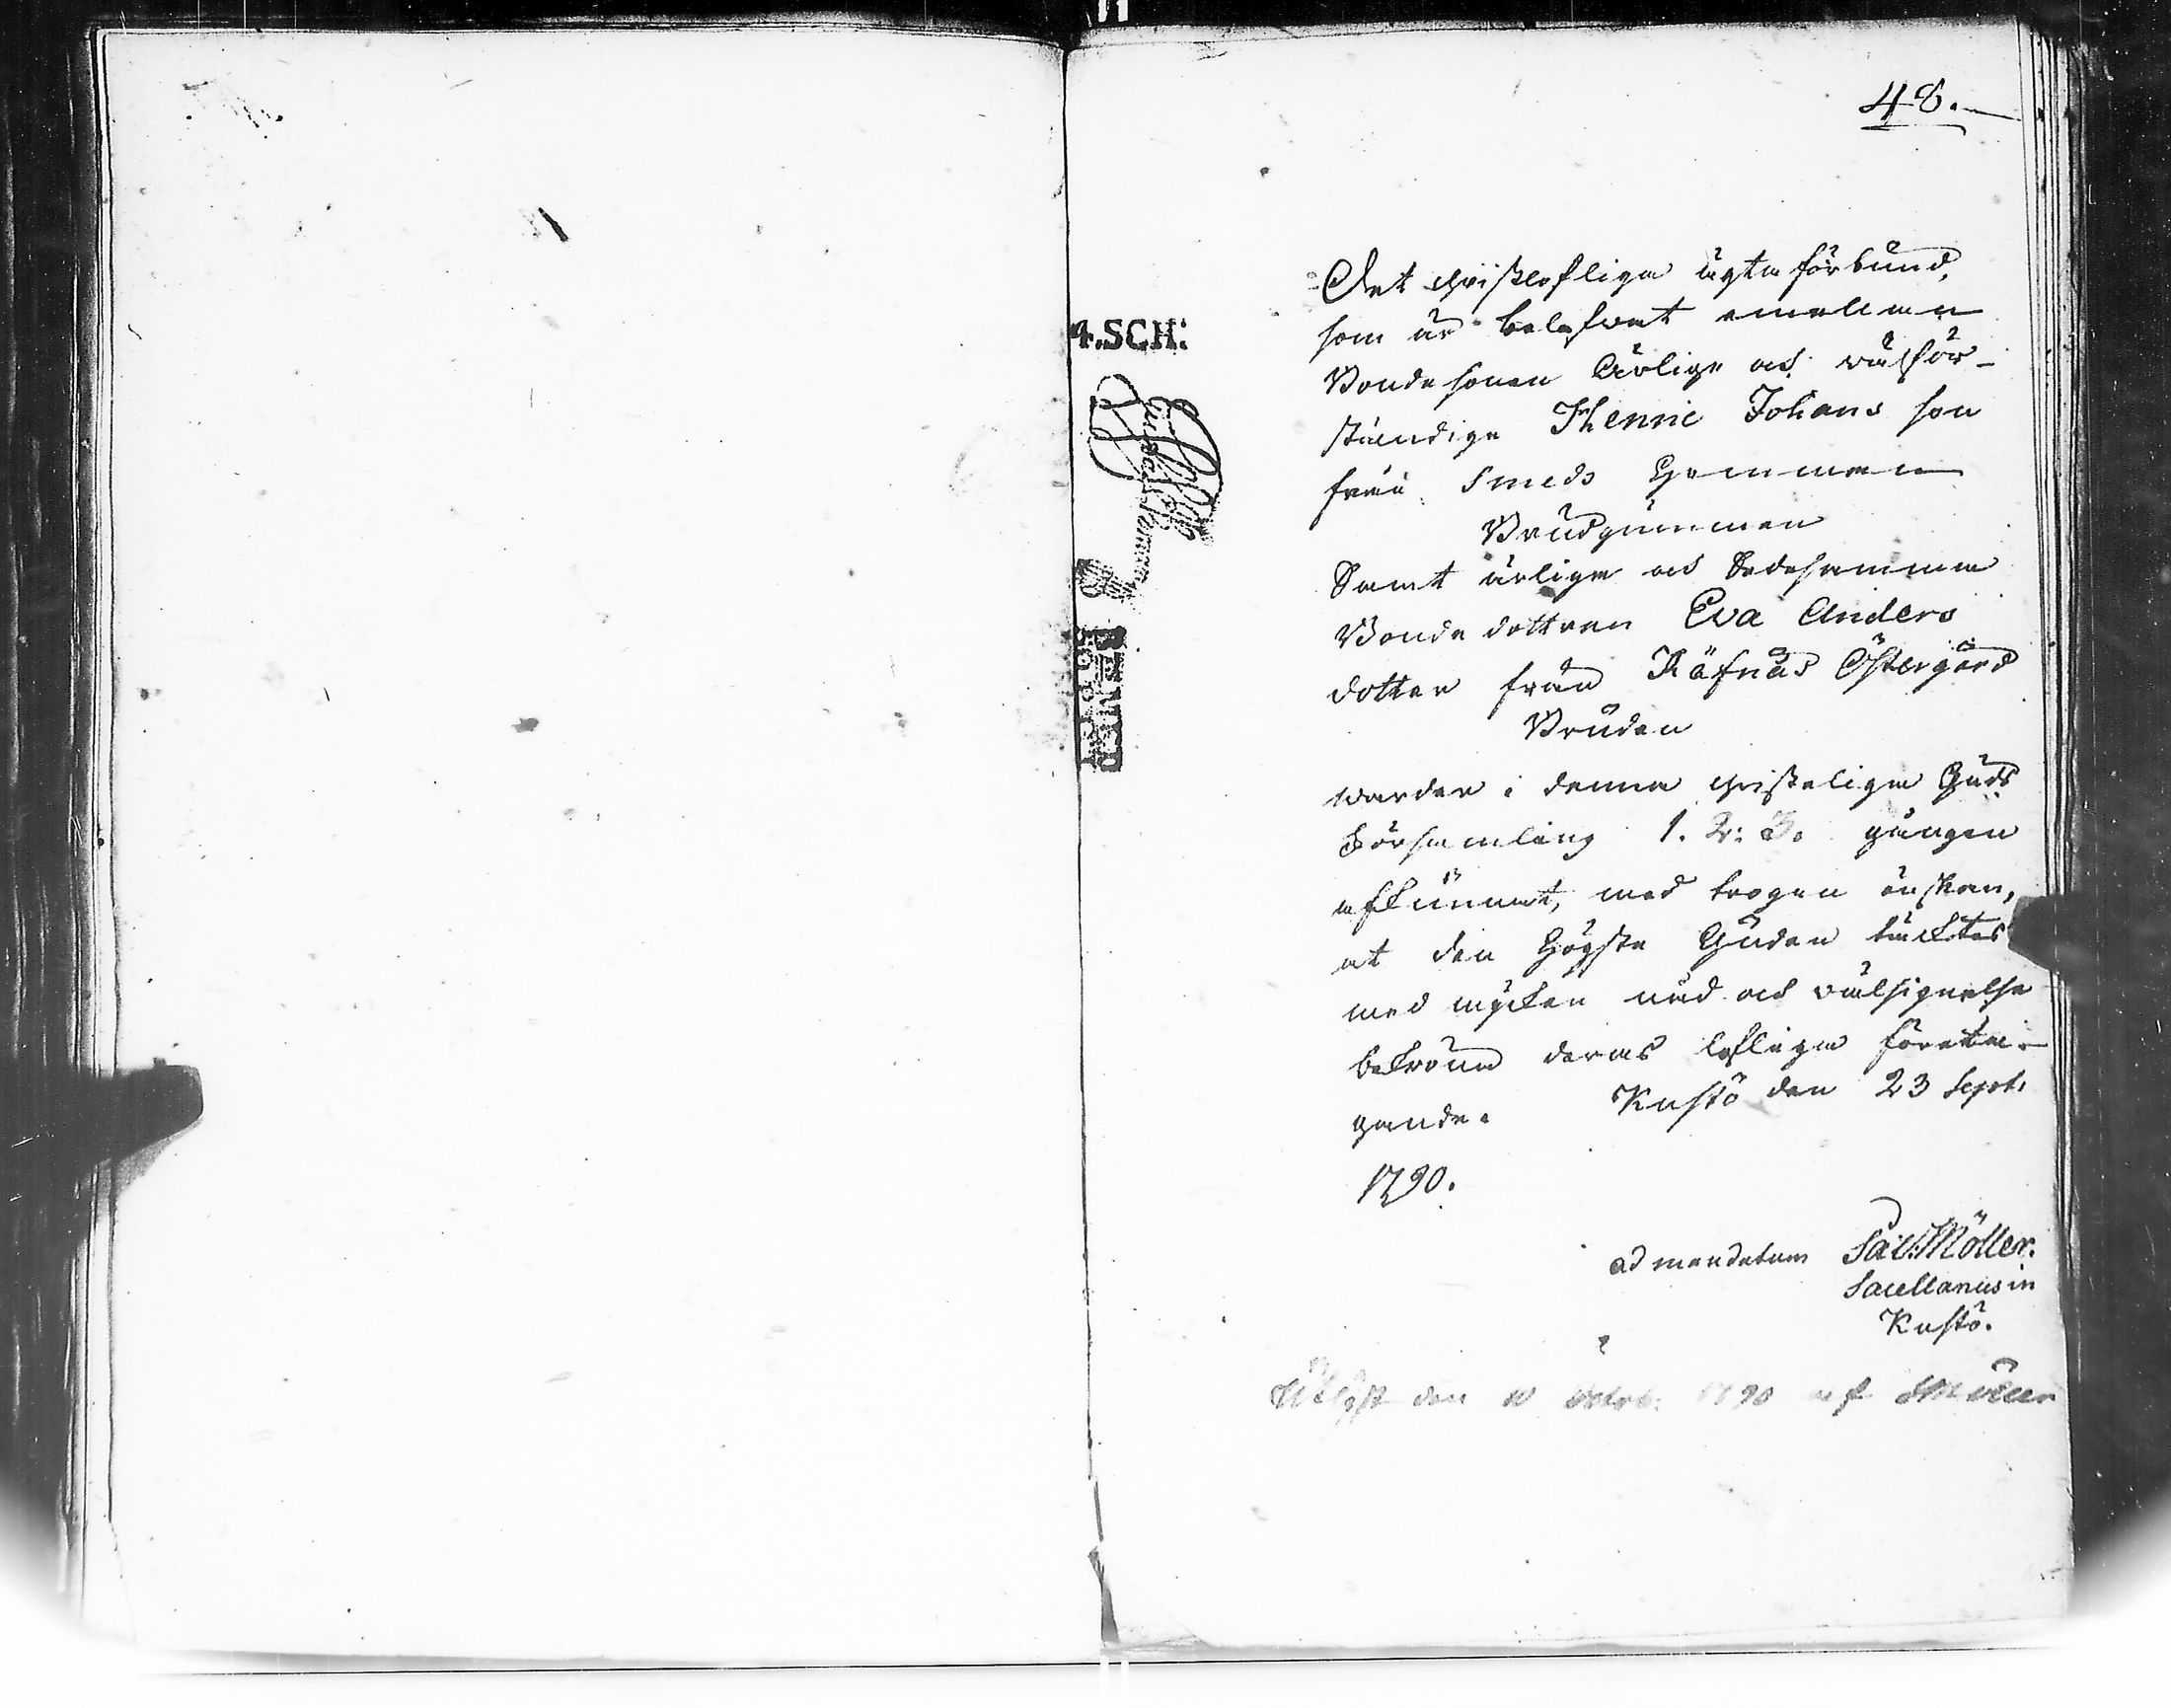 48.
Det christlofliga ägta förbund,
som är belefwat emellan
Bondesonen ärlige och wälför-
ståndige Thenne Johans son
från Smeds Hemman
Brudgummen
Samt ärliga och Sedesamma
Bonde dottren Eva Anders
dotter från Räfnäs Östergård
Bruden
warder i denna christeliga Guds
Församling 1. 2: 3. gången
aflkunnat, med trogen önskan,
at den Högste Guden täcktes
med mycken nåd och wälsignelse
bekröna deras lofliga företa-
gande. Kustö den 23 Sept.
1790.
4.SCH:
ad mandatum Sal: Möller.
Sacellanus in
Kustö.
Utlyst den 10 Octob: 1790 af SMöller